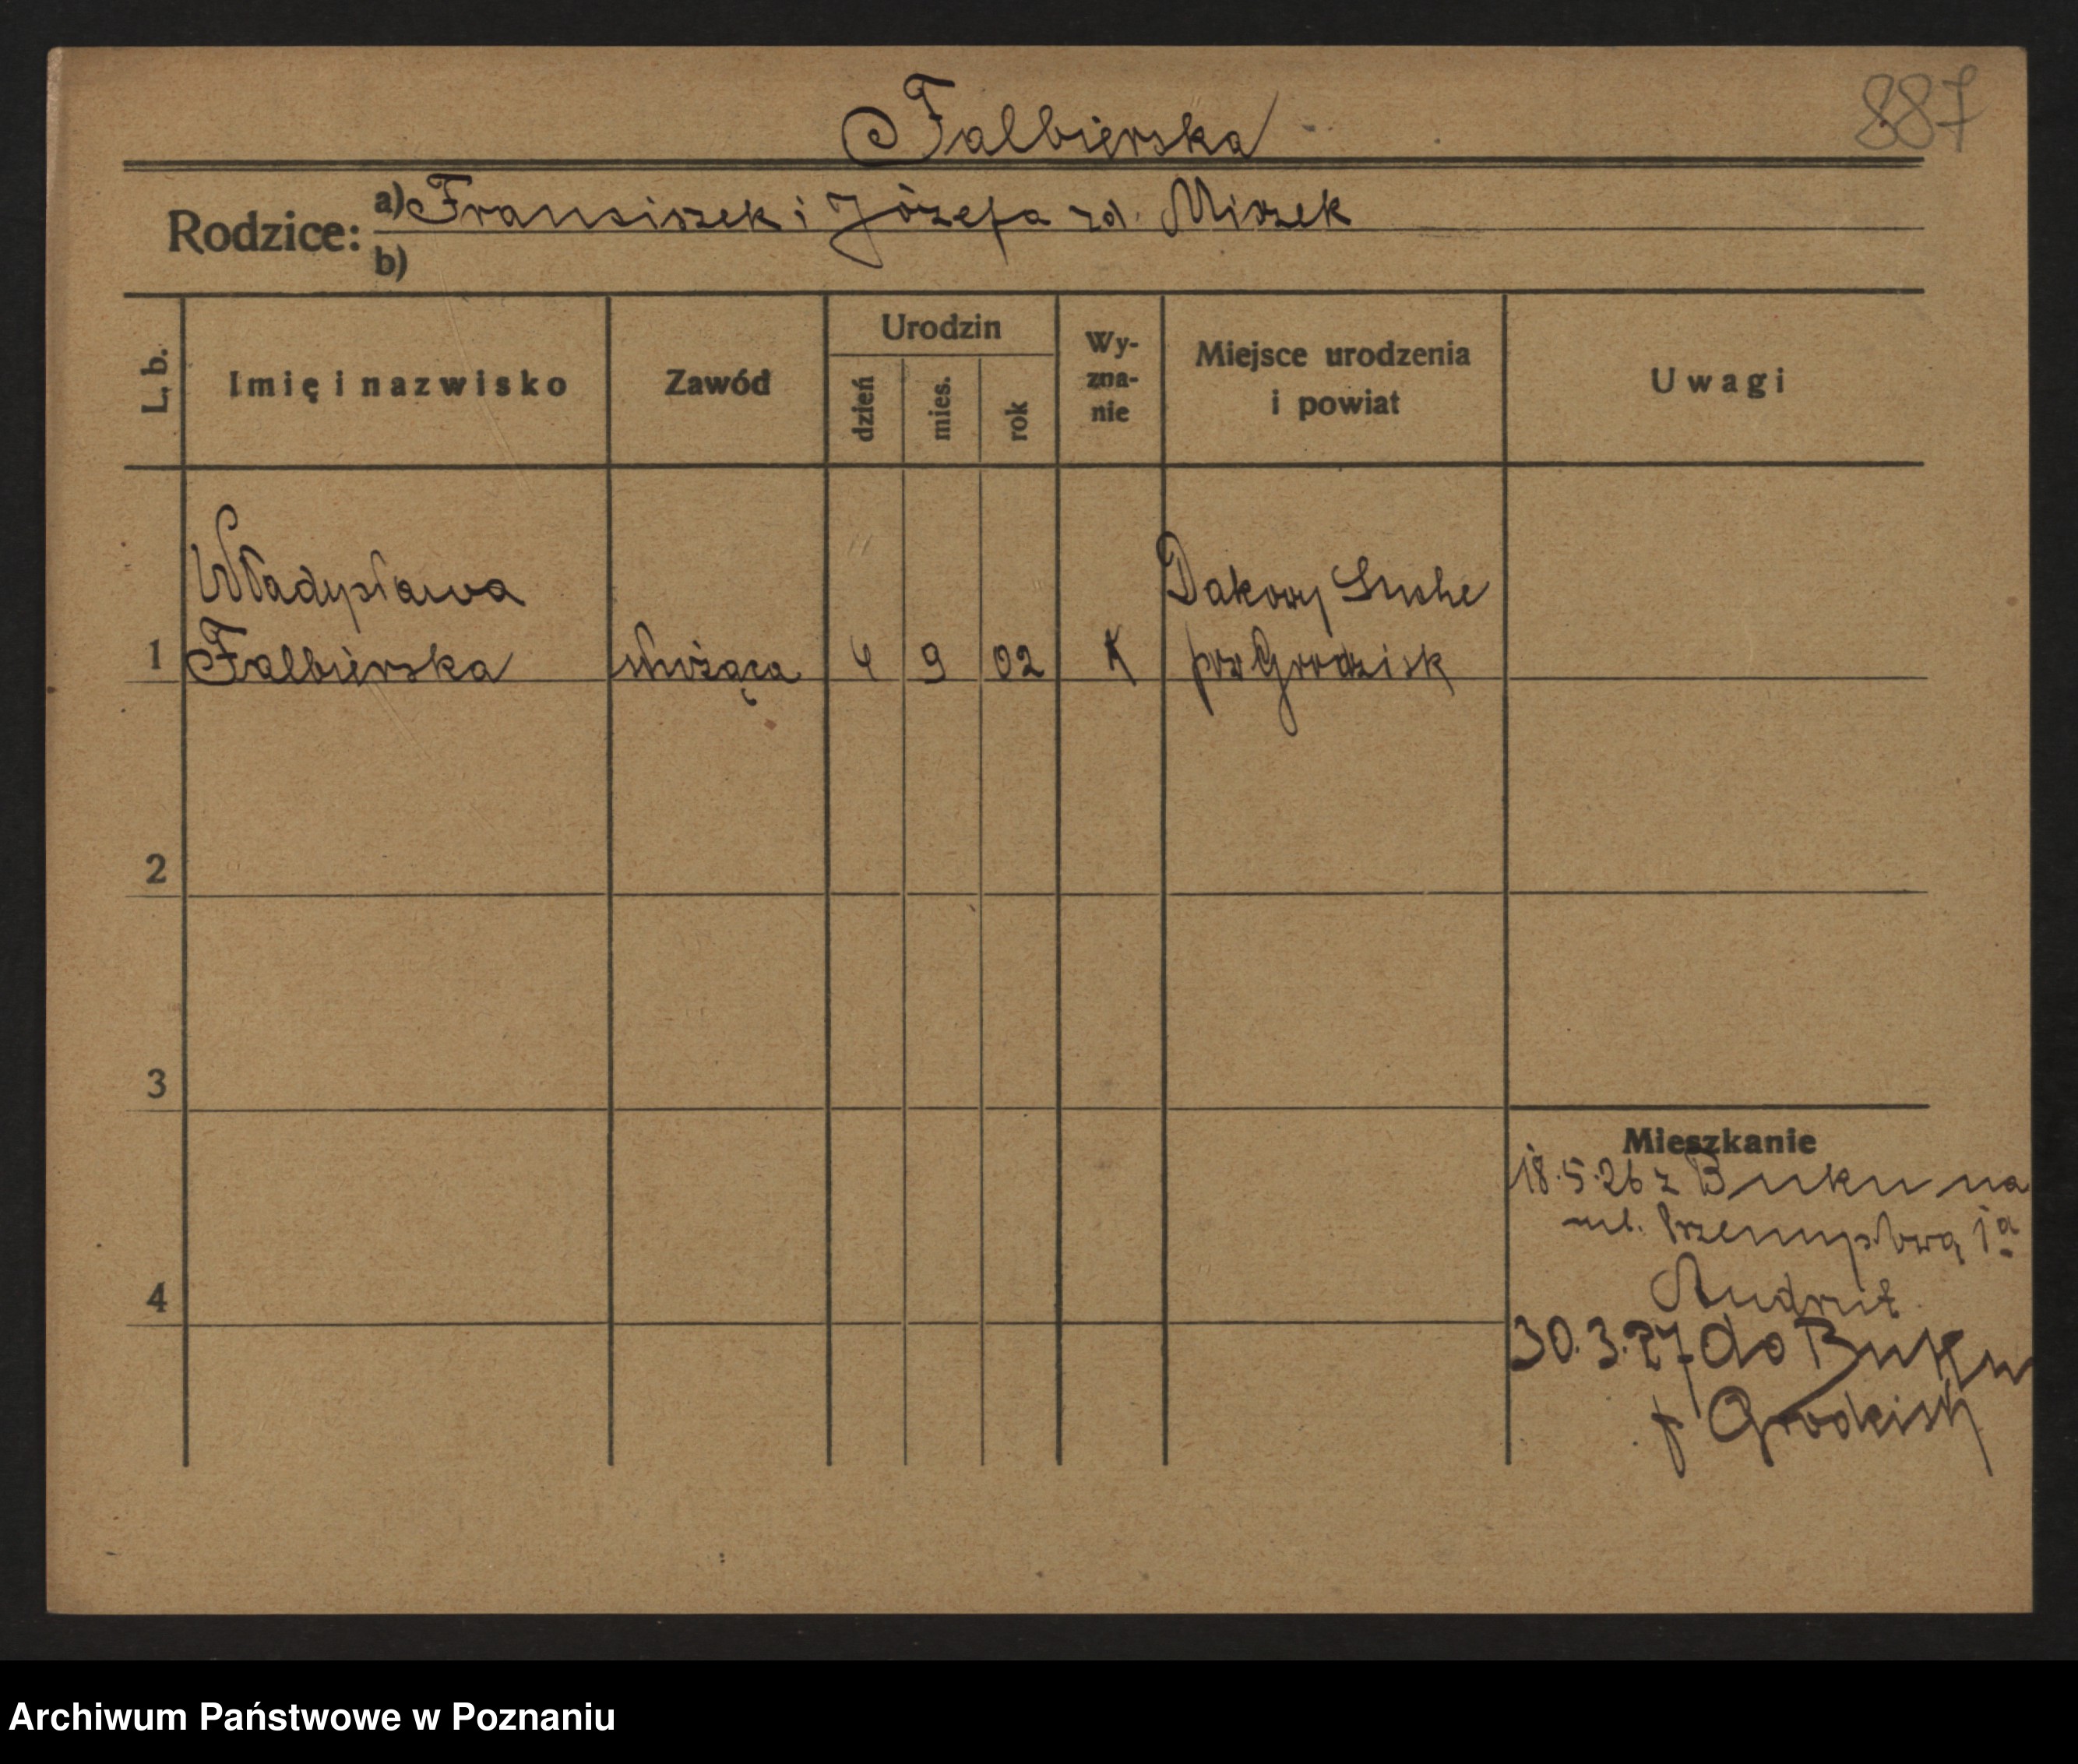 Falbierska
887
Rodzice: a) Fransiszek i Józefa zd. Miszek
b)
L. b.
Imię i nazwisko
Zawód
Urodzin
dzień
mies.
rok
Wy-
zna-
nie
Miejsce urodzenia
i powiat
Uwagi
Władysława
Dakowy Suche
1 Falbierska służąca 4 9 02 K pow Grodzisk
2
3
Mieszkanie
18.5.26 z Buku na
ul. Przemysłową 1a
4
30.3.27 do Buku
p Grodzisk
Archiwum Państwowe w Poznaniu